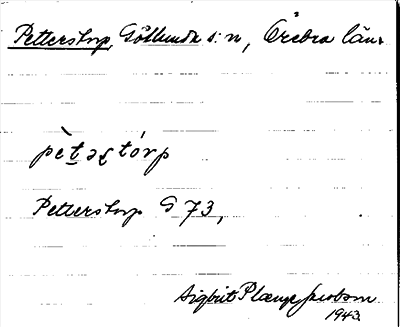 Petterstorp, Götlunda s:n, Örebro län.
pètəʂtórp
Petterstorp G 73,
Sigbrit Plænge Jacobson
1943.